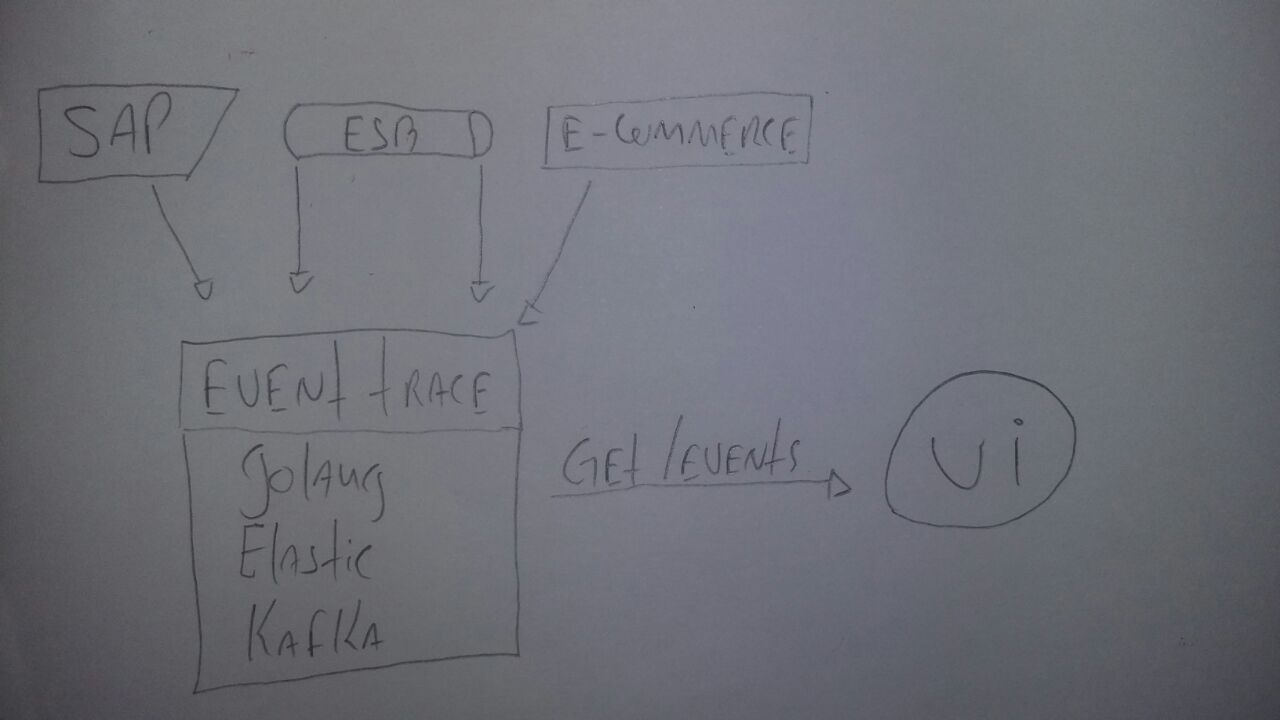 SAP
ESB
E-COMMERCE
EVENt tRACE
Golang
Elastic
KAfKA
GEt /EVENtS
Ui